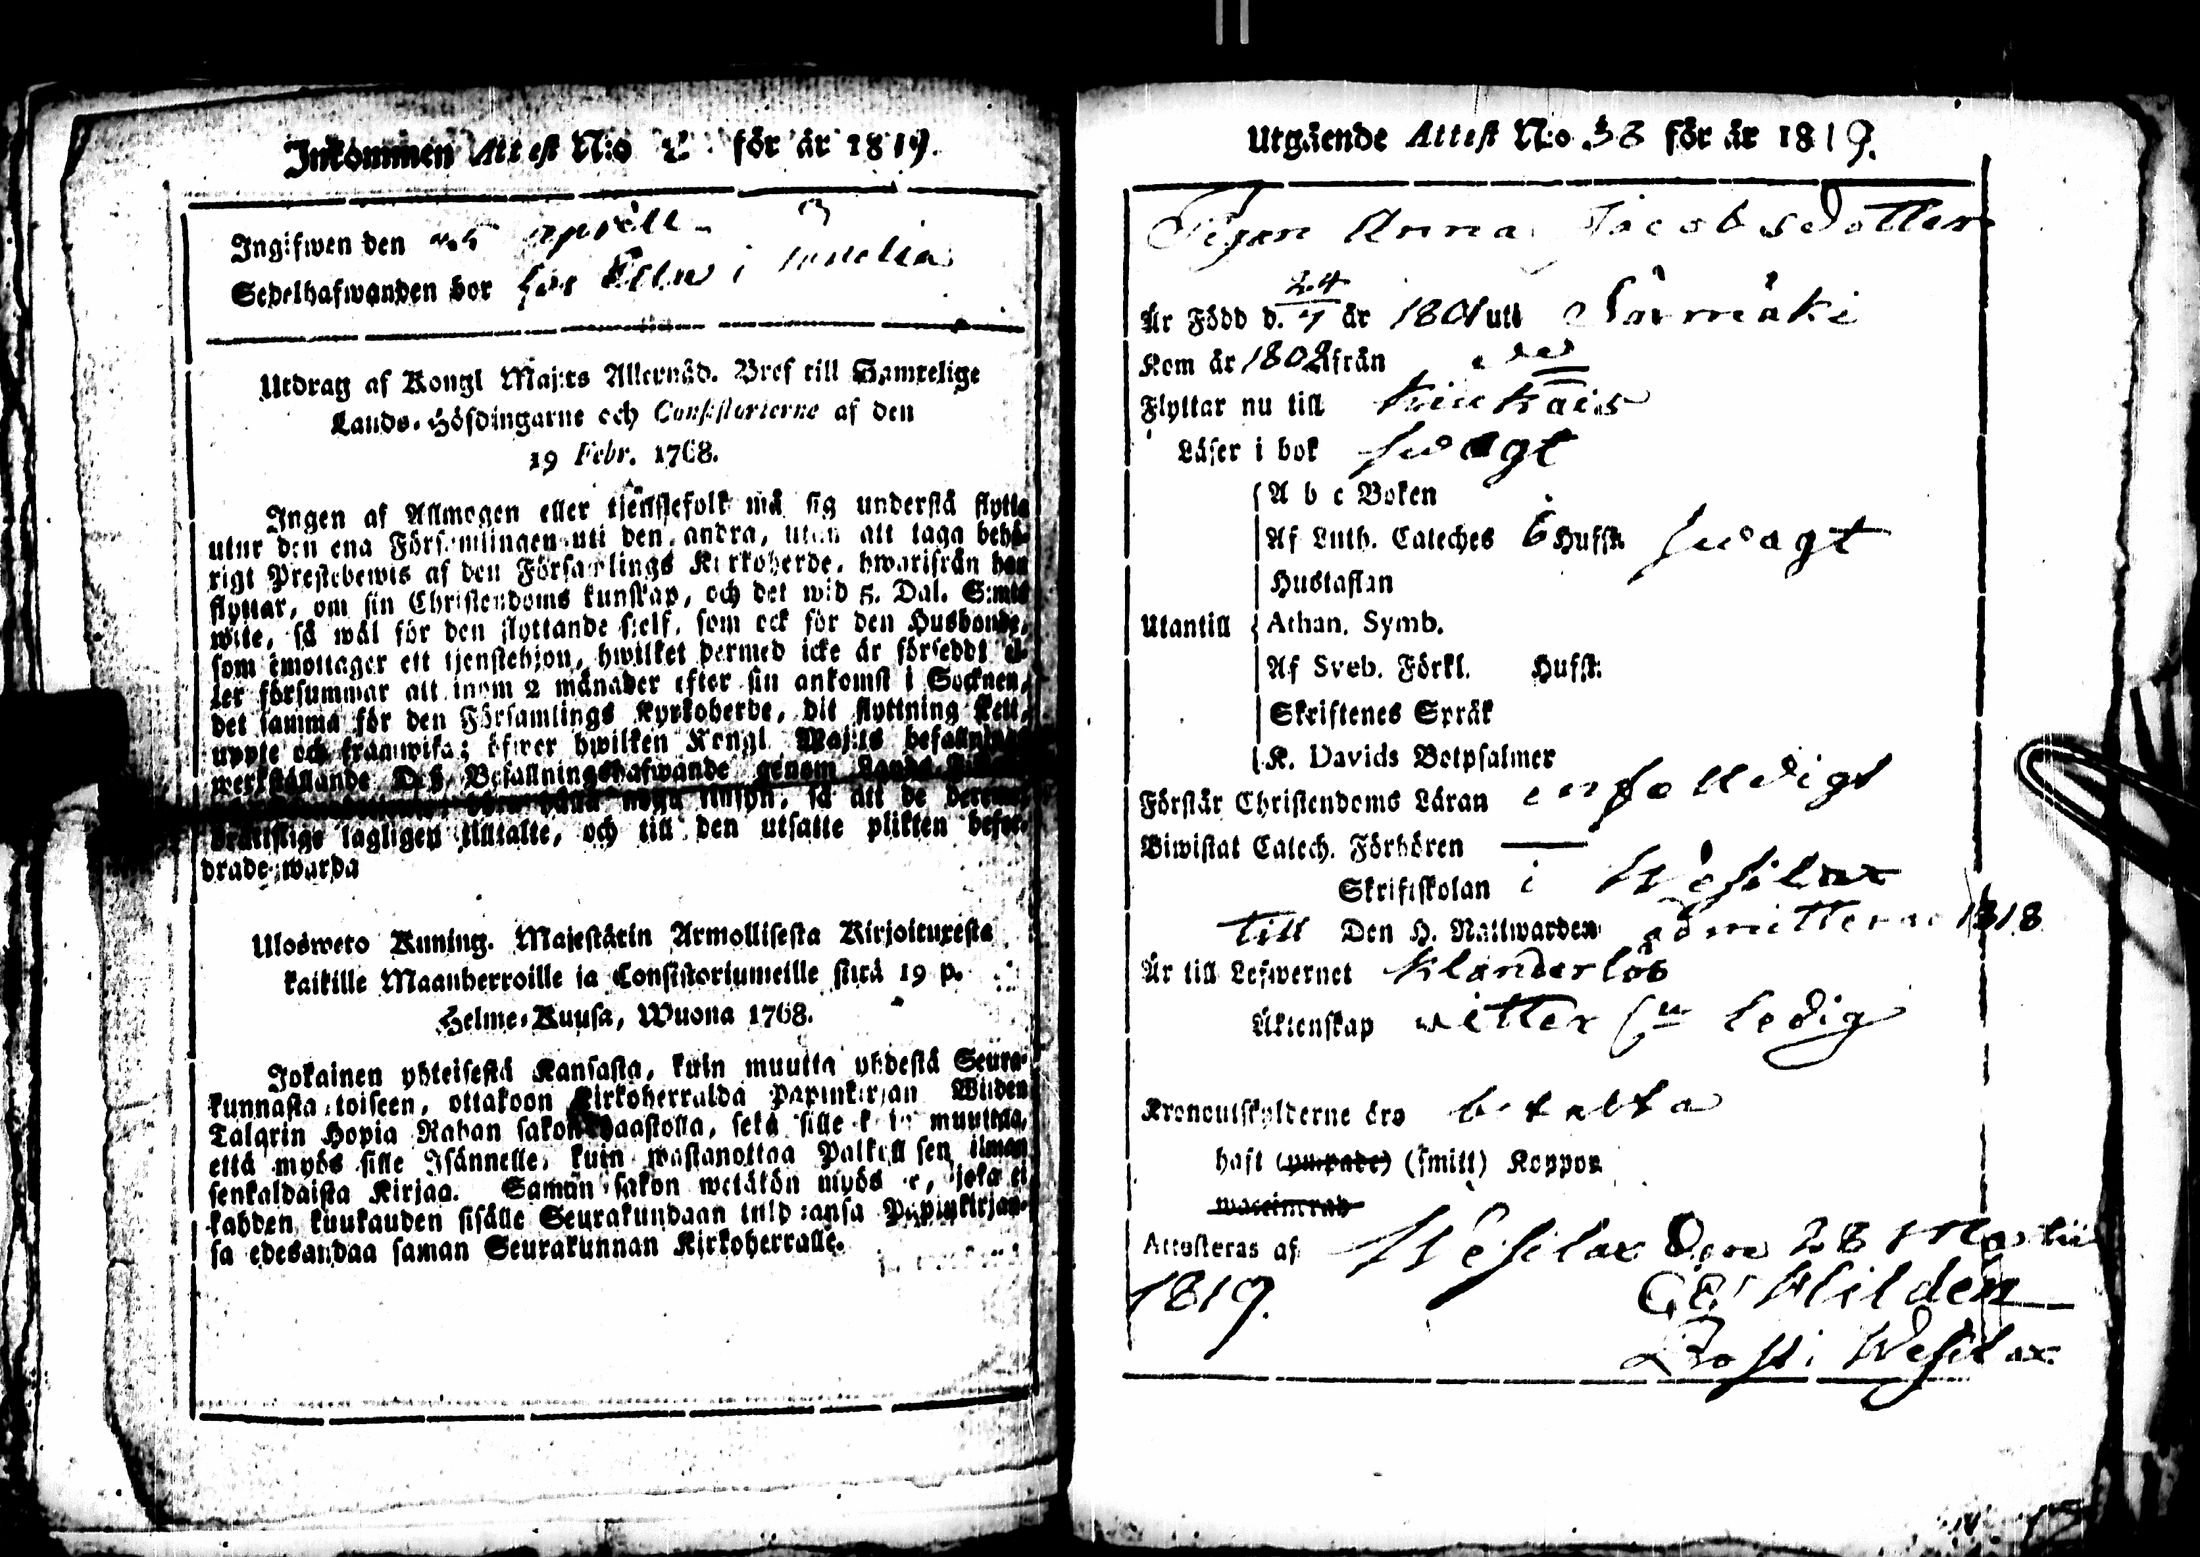 Inkommen Attest N:o för år 1819.
Ingifwen den april
Sedelhafwanden bor hos i
Utdrag af Kongl Maj:ts Allernåd. Bref till Samtelige
Lands-Höfdingarne och Consistorierne af den
19 Febr. 1768.
Ingen af Allmogen eller tjenstefolk må sig understå flytta
utur den ena Församlingen uti den andra, utan att taga behö-
rigt Prestebewis af den Församlings Kyrkoherde, hwarifrån han
flyttar, om sin Christendoms kunskap, och det wid 5. Dal. S:mts
wite, så wäl för den flyttande sjelf, som ock för den Husbonde,
som emottager ett tjenstehjon, hwilket dermed icke är försedt el-
ler försummar att inom 2 månader efter sin ankomst i Socknen,
det samma för den Församlings Kyrkoherde, dit flyttning skett,
uppte och framwisa; öfwer hwilken Kongl Maj:ts befallnings
werkställande Befallningshafwande genom Lands
noga tillsyn, så att de
lagligen tilltalte, och till den utsatte plikten befor-
drade warda
Ulosweto Kuning. Majestätin Armollisesta Kirjoituxesta
kaikille Maanherroille ja Consistoriumeille siitä 19 p.
Helme-Kuusa, Wuona 1768.
Jokainen yhteisestä Kansasta, kuin muutta yhdestä Seura-
kunnasta toiseen, ottakoon Kirkoherralda Papinkirjan Wiiden
Talarin Hopia Rahan sakon haastolla, sekä sille muuttaa,
että myös sille Isännelle, kuin wastanottaa Palkoll sen ilman
senkaldaista Kirjaa. Samän sakon wetäkön myös se, joka ei
kahden kuukauden sisälle Seurakundaan Papinkirjan-
sa edesandaa saman Seurakunnan Kirkoherralle.
Utgående Attest N:o 38 för år 1819.
Pigan Anna Jacobsdotter
Är Född d. 24/7 år 1801 utt Sarmäki
Kom år 1802 ifrån
Flyttar nu till
Läser i bok swagt
A b c Boken
Af Luth. Cateches 6 Hufst. swagt
Hustaflan
Utantill Athan. Symb.
Af Sveb. Förkl. Hufst.
Skriftenes Språk
K. Davids Botpsalmer
Förstår Christendoms Läran enfalldigt
Biwistat Catech. Förhören —
Skriftskolan i Wesilax
till Den H. Nattwarden admitterad 1818
Är till Lefwernet klanderlös
Äktenskap witter ledig
Kronoutskylderne äro betalta
haft (ympade) (smitt) Koppor
waccinerad
Attesteras af Wesilax den 28 Martii
1819. Wilden
i Wesilax